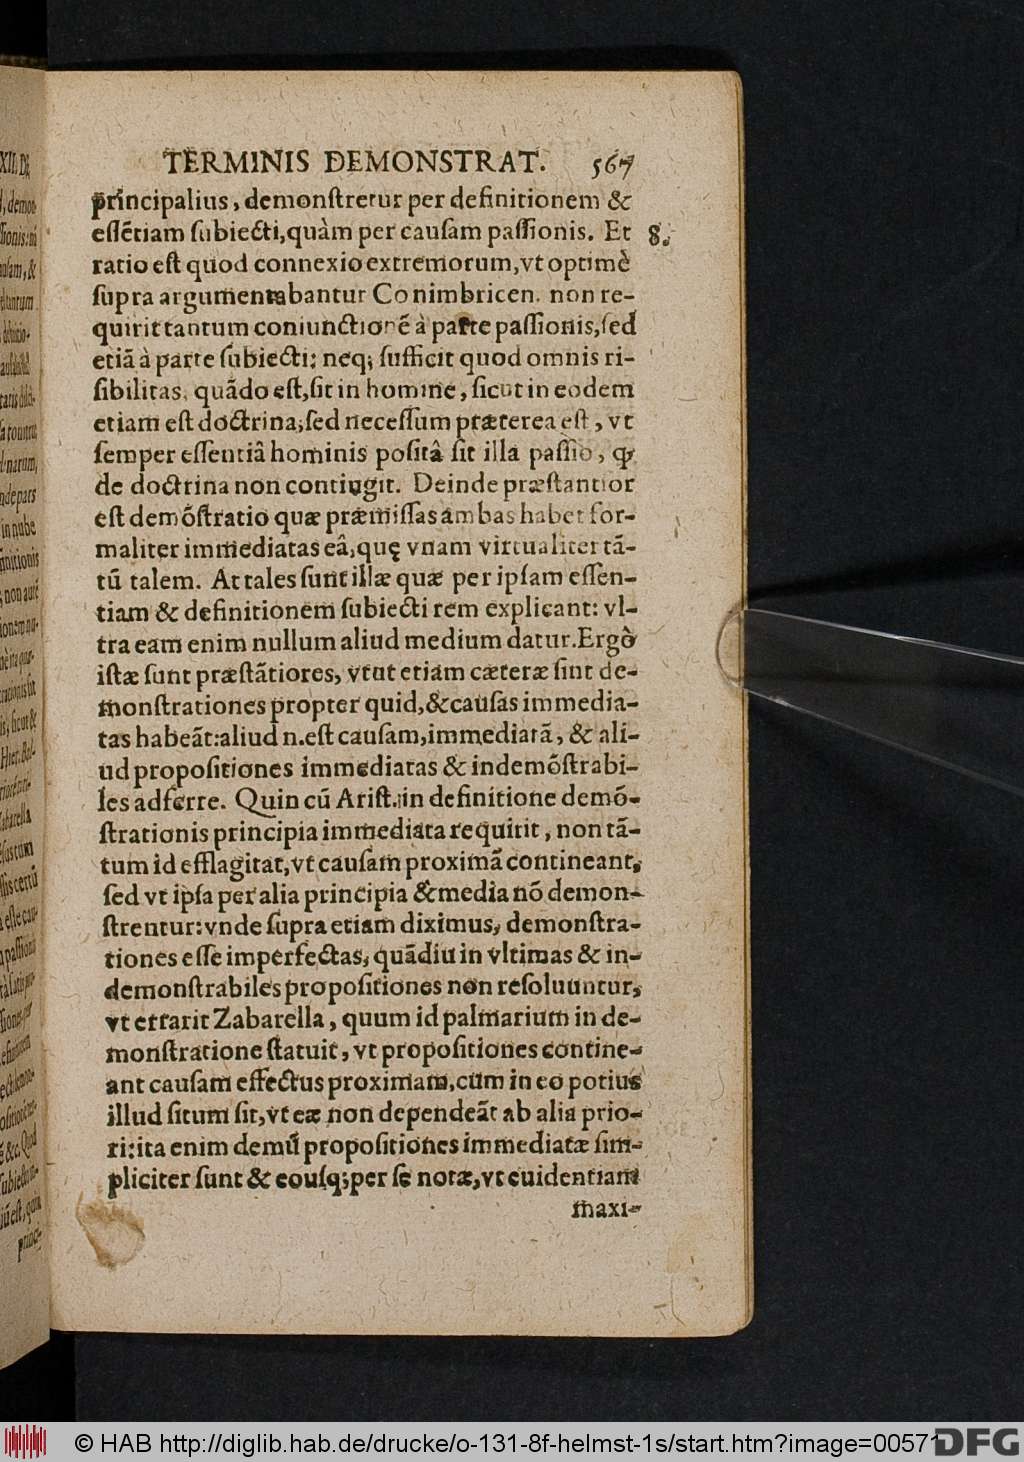 TERMINIS DEMONSTRAT. 567
principalius, demonſtretur per definitionem &
eſſẽtiam ſubiecti, quàm per cauſam paſſionis. Et 8.
ratio eſt quod connexio extremorum, vt optimè
ſupra argumentabantur Conimbricen. non re-
quirit tantum coniunctionẽ à parte paſſionis, ſed
etiã à parte ſubiecti: neq; ſufficit quod omnis ri-
ſibilitas, quãdo eſt, ſit in homine, ſicut in eodem
etiam eſt doctrina; ſed neceſſum præterea eſt, vt
ſemper eſſentiâ hominis poſitâ ſit illa paſſio, ꝙ
de doctrina non contingit. Deinde præſtantior
eſt demõſtratio quæ præmiſſas ambas habet for-
maliter immediatas eâ, quę vnam virtualiter tã-
tũ talem. At tales ſunt illæ quæ per ipſam eſſen-
tiam & definitionem ſubiecti rem explicant: vl-
tra eam enim nullum aliud medium datur. Ergò
iſtæ ſunt præſtãtiores, vtut etiam cæteræ ſint de-
monſtrationes propter quid, & cauſas immedia-
tas habeãt: aliud n. eſt cauſam, immediatã, & ali-
ud propoſitiones immediatas & indemõſtrabi-
les adferre. Quin cũ Ariſt. in definitione demõ-
ſtrationis principia immediata requirit, non tã-
tum id efflagitat, vt cauſam proximã contineant,
ſed vt ipſa per alia principia & media nõ demon-
ſtrentur: vnde ſupra etiam diximus, demonſtra-
tiones eſſe imperfectas, quãdiu in vltimas & in-
demonſtrabiles propoſitiones non reſoluuntur,
vt errarit Zabarella, quum id palmarium in de-
monſtratione ſtatuit, vt propoſitiones contine-
ant cauſam effectus proximam, cùm in eo potius
illud ſitum ſit, vt eæ non dependeãt ab alia prio-
ri: ita enim demũ propoſitiones immediatæ ſim-
pliciter ſunt & eouſq; per ſe notæ, vt euidentiam
maxi-
© HAB http://diglib.hab.de/drucke/o-131-8f-helmst-1s/start.htm?image=00571
DFG